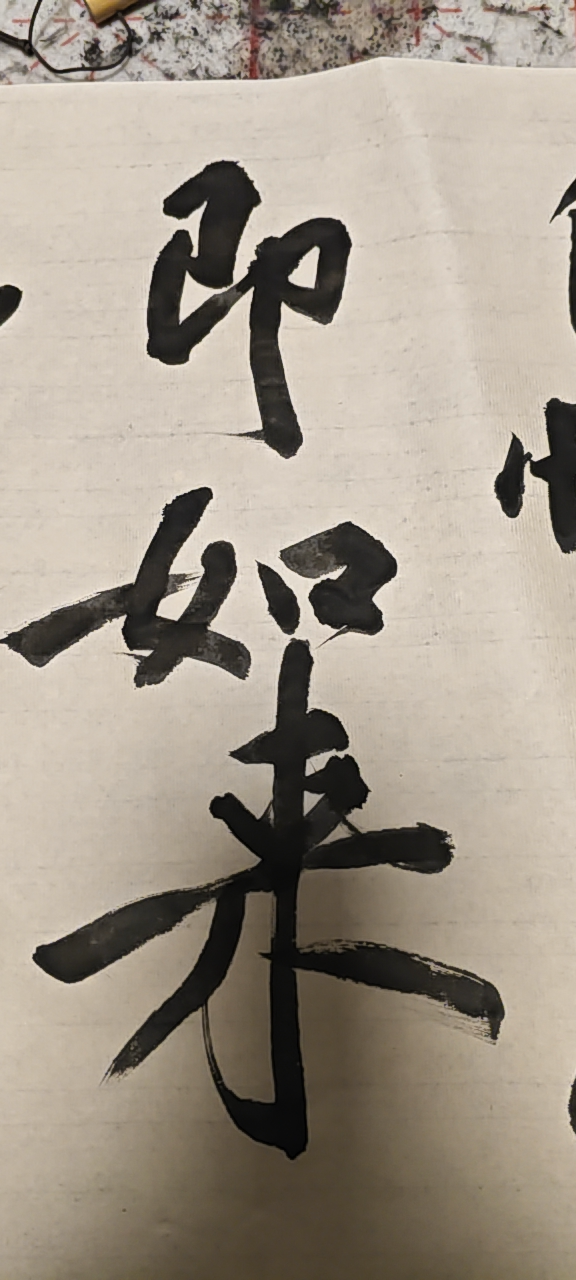 即如来